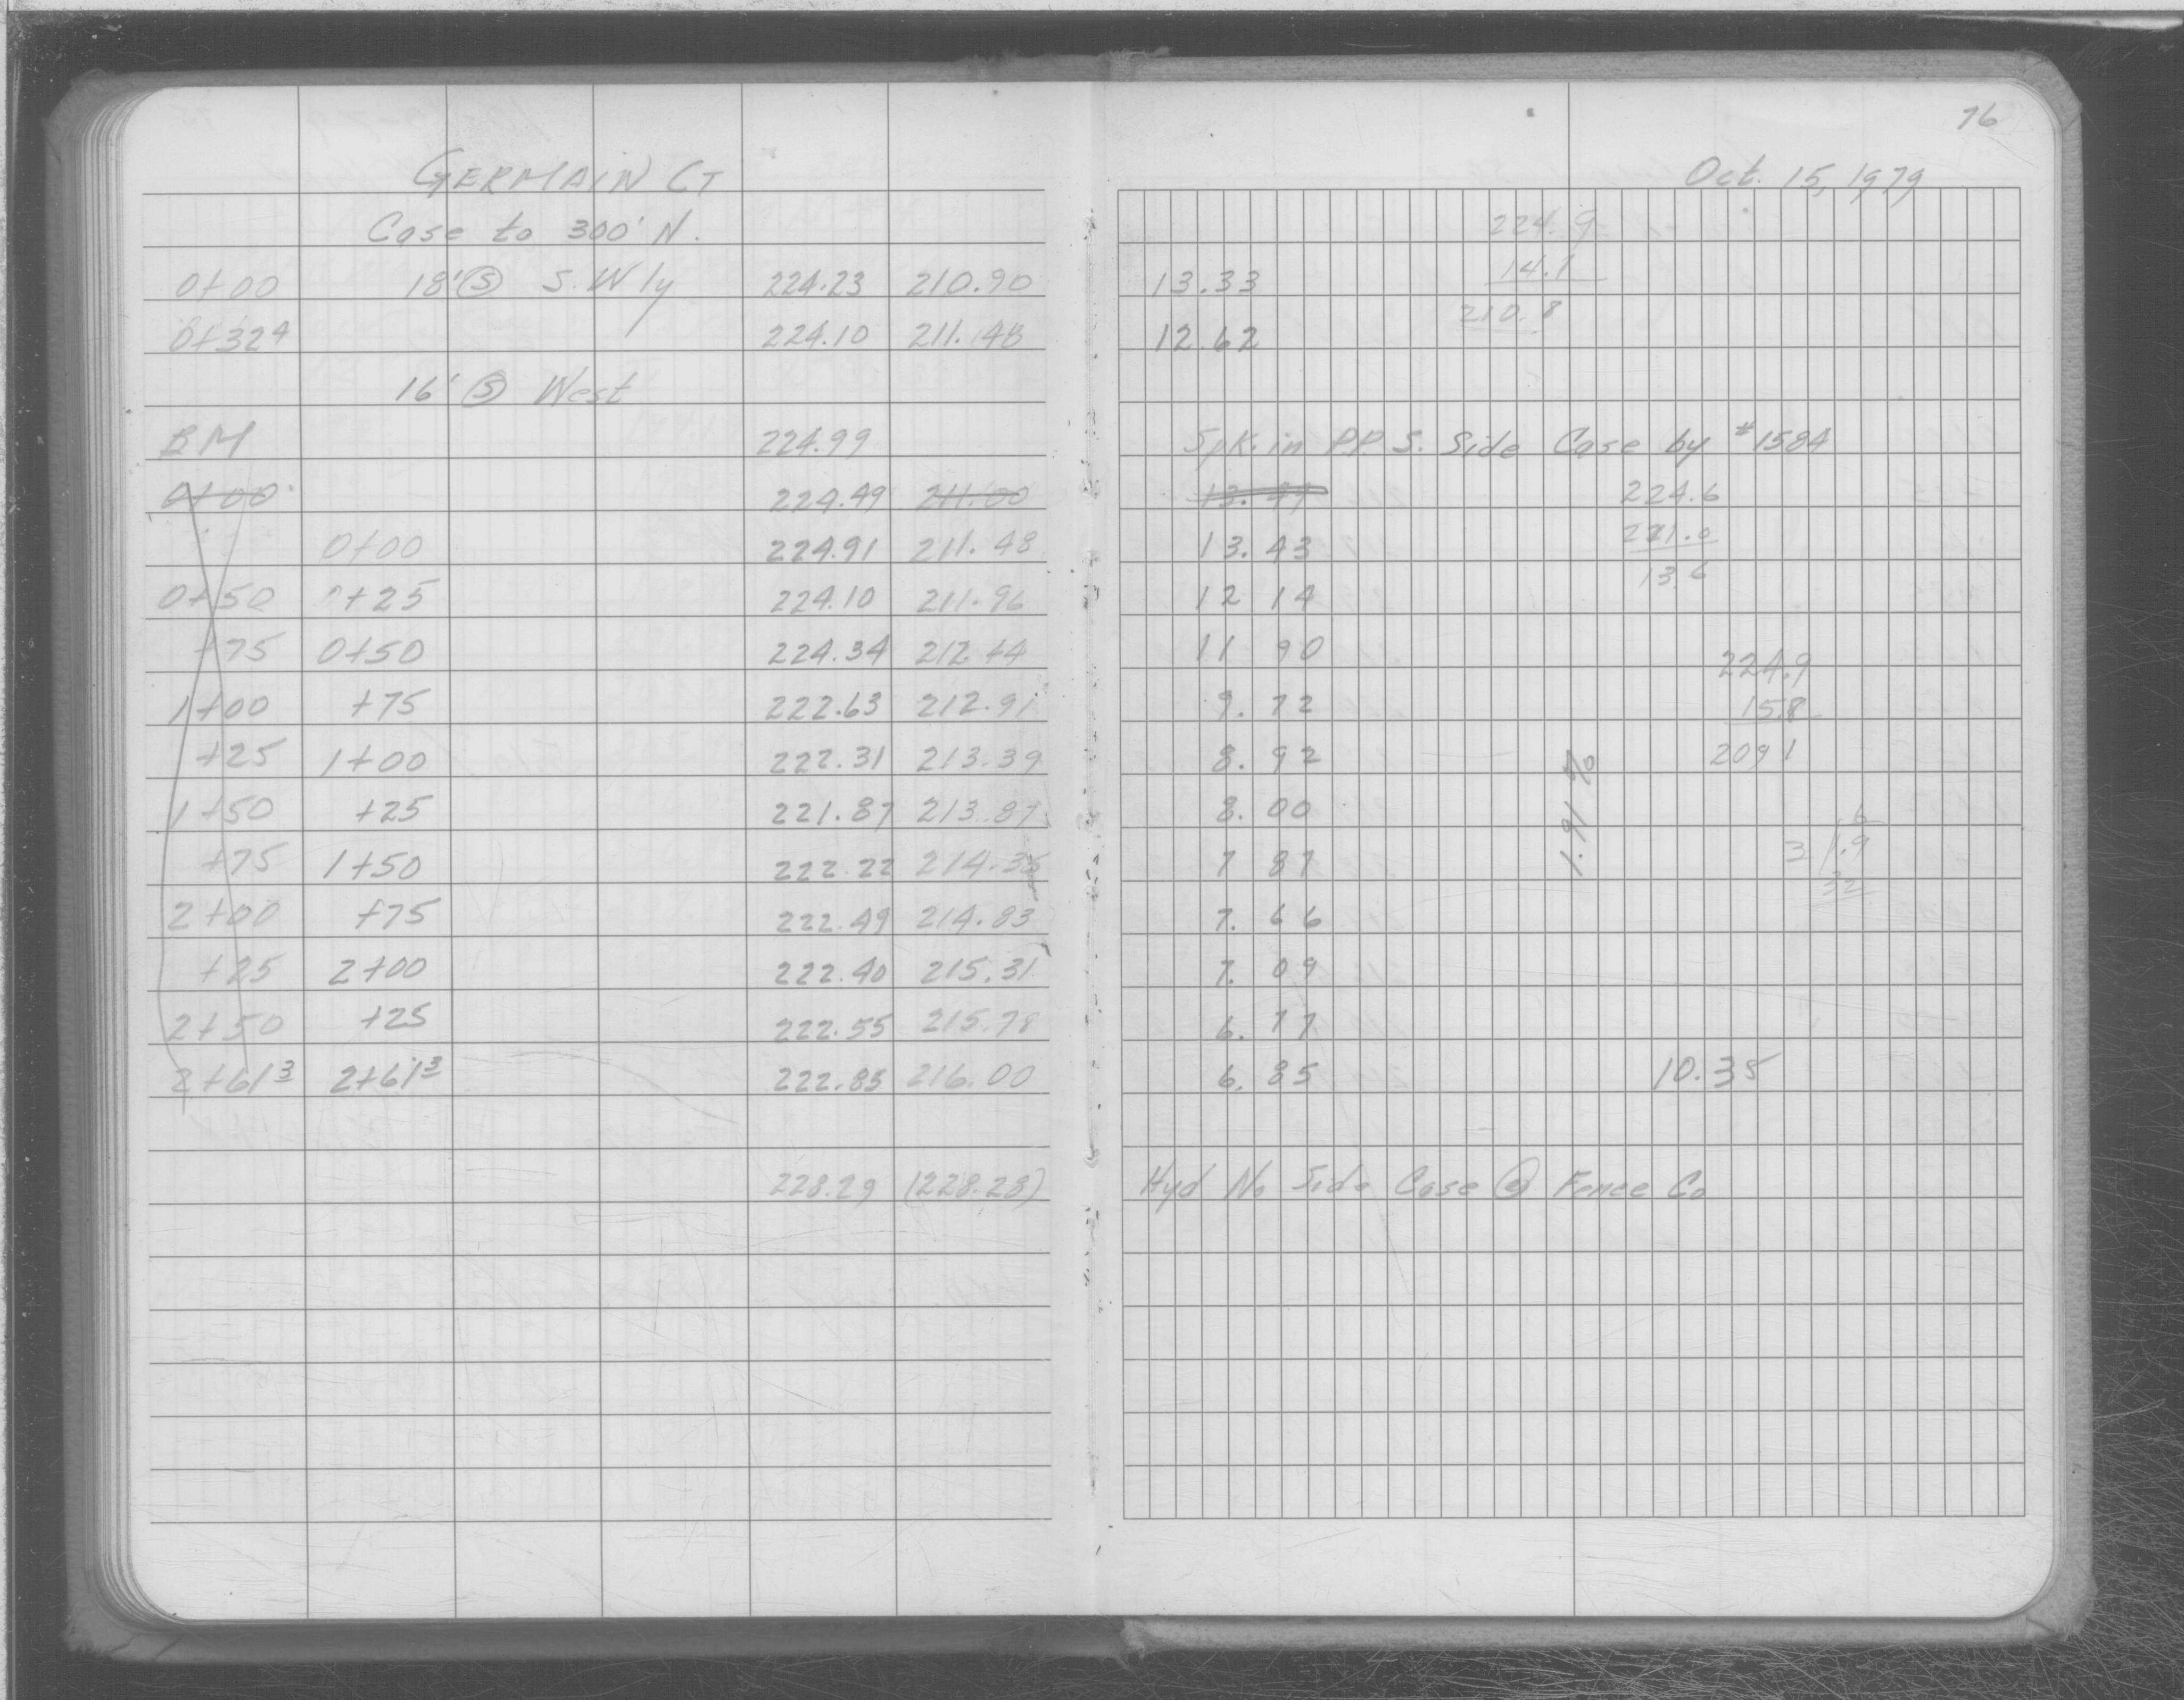 76
GERMAIN CT Oct. 15, 1979
Case to 300' N. 224.9
0+00 18' Ⓢ S. W'ly 224.23 210.90 13.33 14.1
0+32⁴ 224.10 211.48 12.62 210.8
16' Ⓢ West
BM 224.99 Spk. in PP S. Side Case by #1584
0+00 224.49 211.00 224.6
0+00 224.91 211.48 13.43 211.0
0+50 0+25 224.10 211.96 12 14 13.6
+75 0+50 224.34 212.44 11 90 224.9
1+00 +75 222.63 212.91 9.72 15.8
+25 1+00 222.31 213.39 8.92 209 1
1+50 +25 221.87 213.87 8.00 1.91 % 6
+75 1+50 222.22 214.35 7 87 3 1.9
2+00 +75 222.49 214.83 7.66 32
+25 2+00 222.40 215.31 7.09
2+50 +25 222.55 215.78 6.77
2+61³ 2+61³ 222.85 216.00 6.85 10.35
228.29 (228.28) Hyd No Side Case @ Fence Co